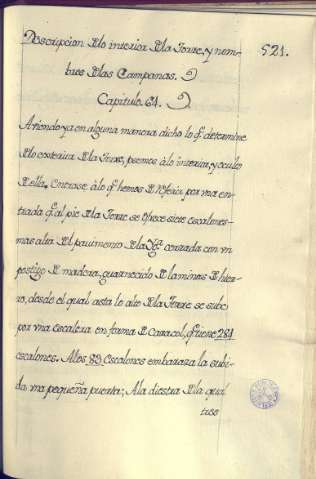 521.
Descripcion de lo interior de la Torre, y nom-
bres de las Campanas.
Capitulo 61.
Aviendo ya en alguna manera dicho lo q̃ determine
de lo exterior de la Torre, pasemos à lo interior, y oculto
de ella. Entrase à lo q̃ hemos de referir por vna en-
trada q̃ al pie de la Torre se ofrece siete escalones
mas alta del pauimento de la Yg.ª cerrada con vn
postigo de madera, guarnecido de laminas de hier-
ro, desde el qual asta lo alto de la Torre se sube
por vna escalera en forma de Caracol, q̃ tiene 281
escalones. A los 83 Escalones embaraza la subi-
da vna pequeña puerta; A la diestra de la qual